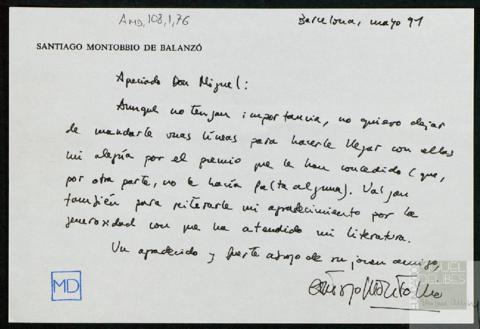 AMD, 108, 1, 76
Barcelona, mayo 91
SANTIAGO MONTOBBIO DE BALANZÓ
Apreciado Don Miguel:
Aunque no tengan importancia, no quiero dejar
de mandarle unas líneas para hacerle llegar con ellas
mi alegría por el premio que le han concedido (que,
por otra parte, no le hacía falta alguna). Valgan
también para reiterarle mi agradecimiento por la
generosidad con que ha atendido mi literatura.
Un agradecido y fuerte abrazo de su joven amigo,
Santiago Montobbio
MD
MIGUEL
DELIBES